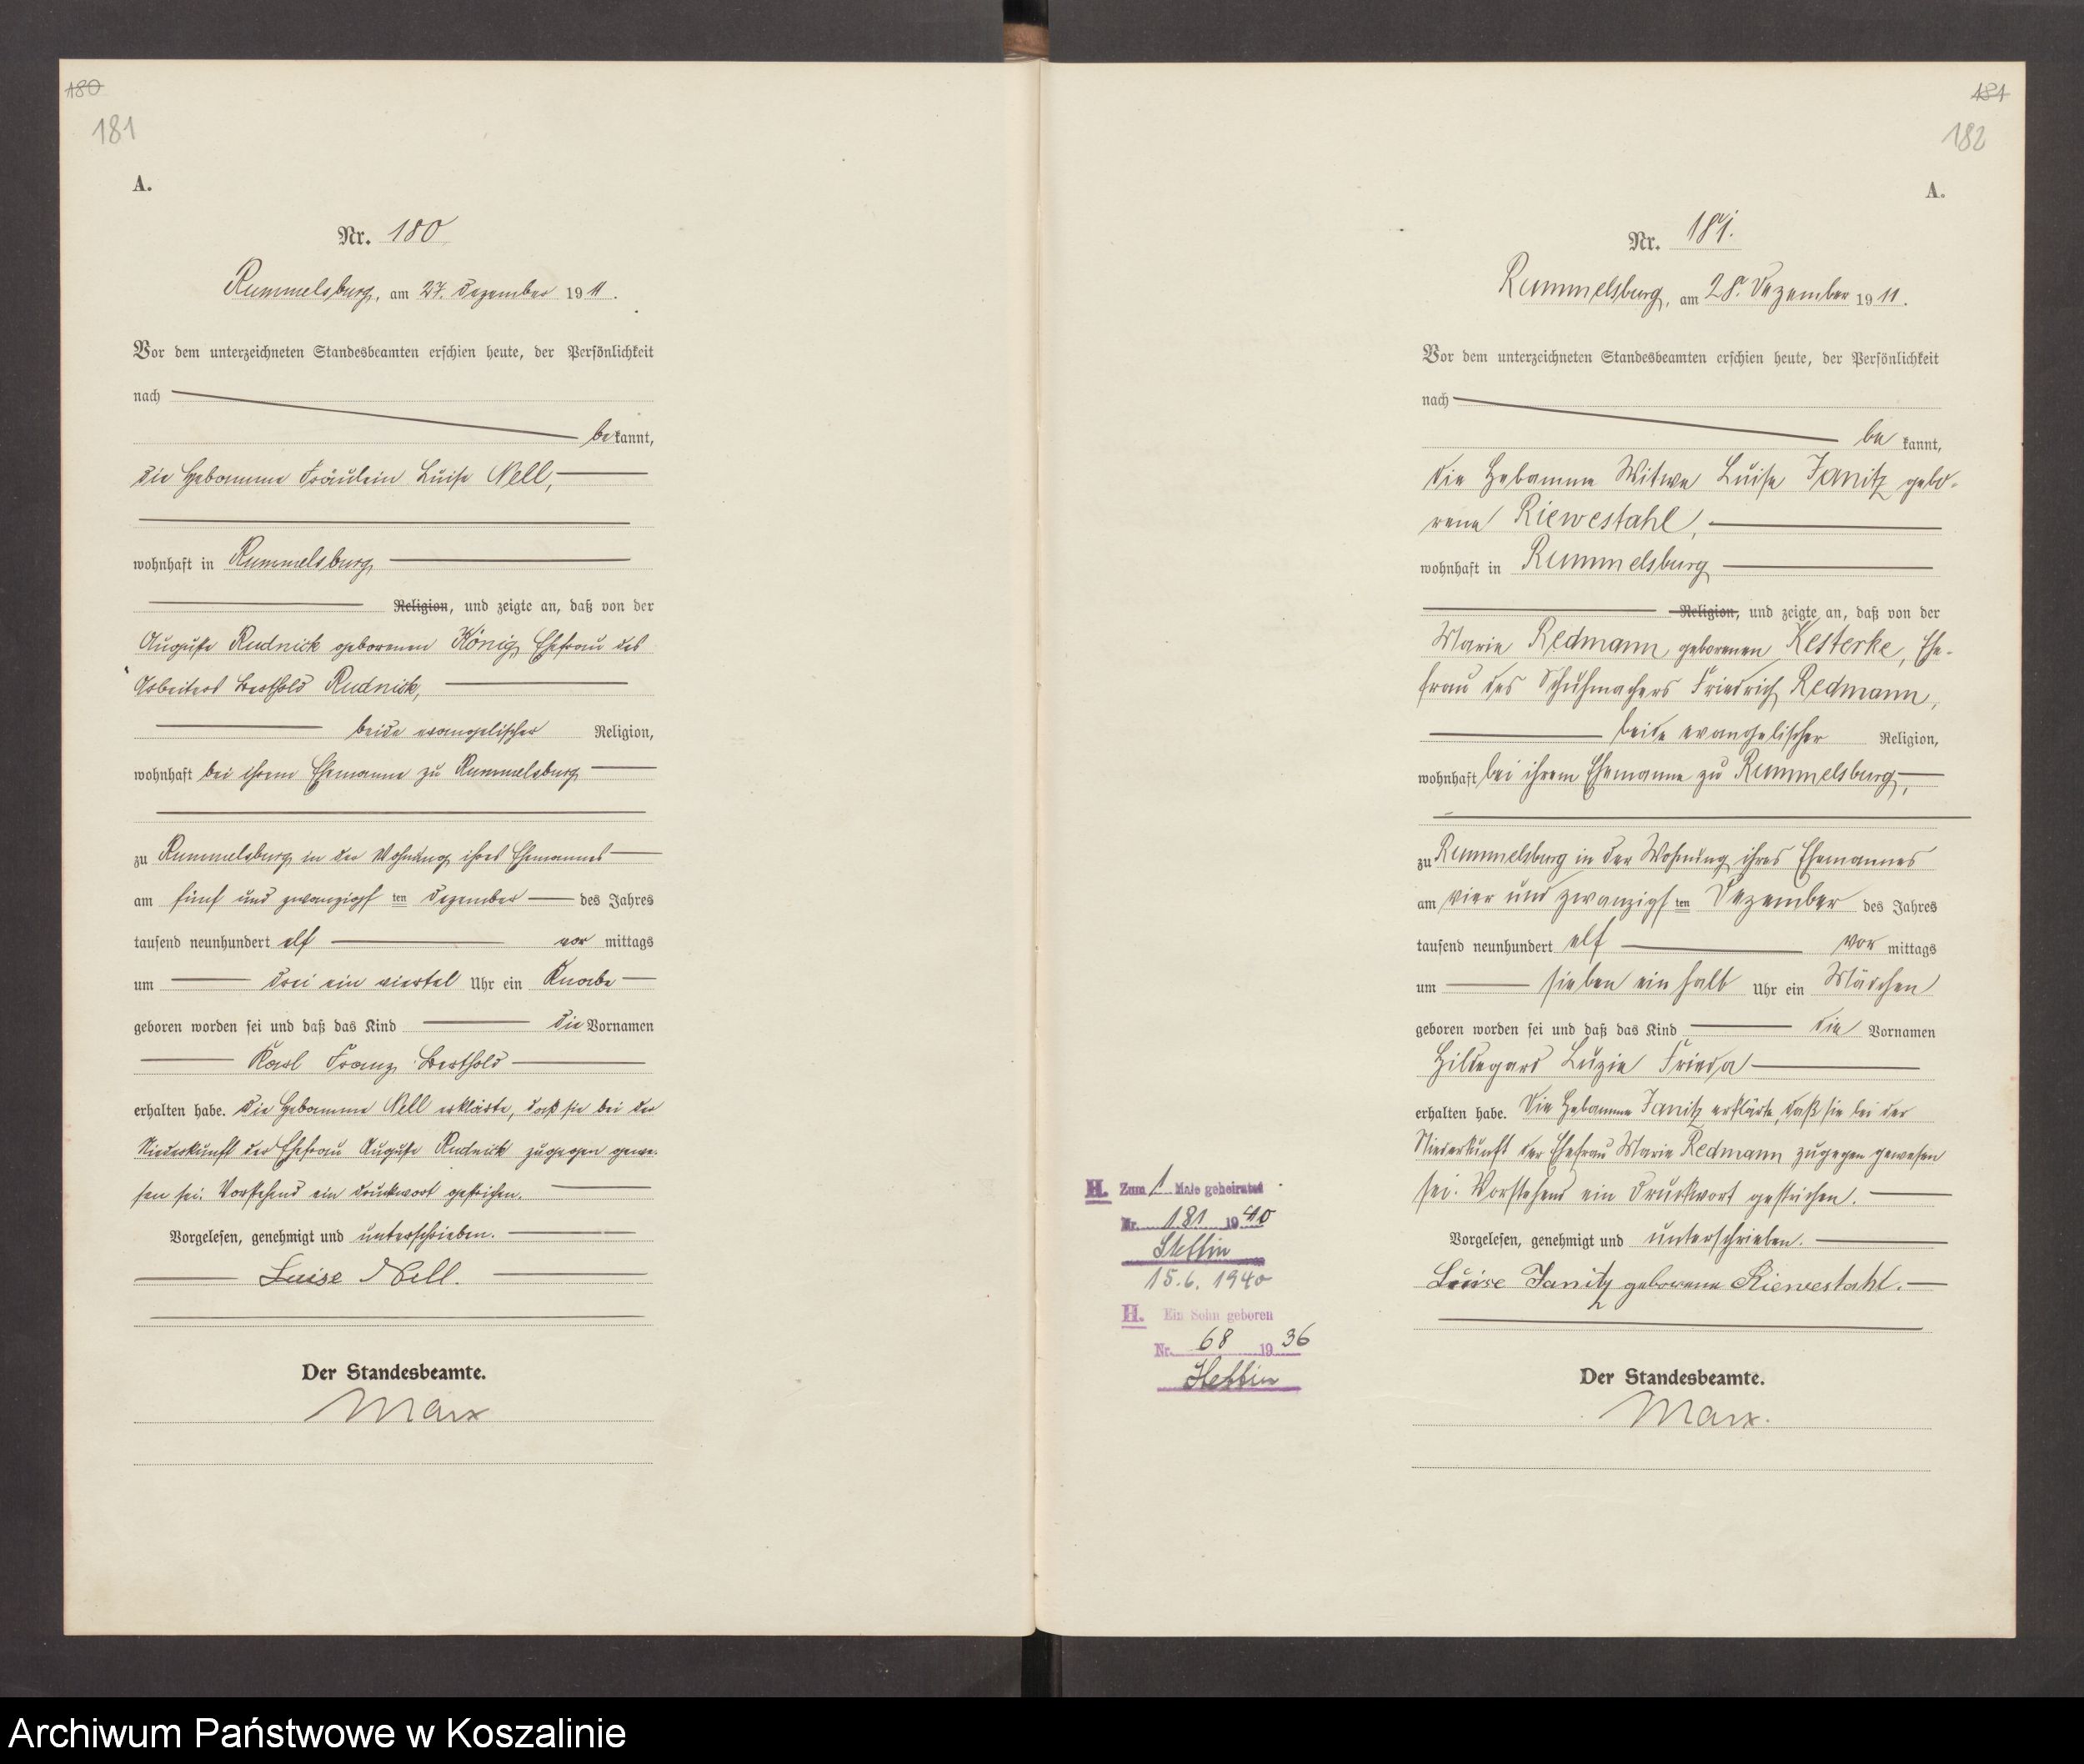 180
181
A.
Nr. 180
Rummelsburg, am 27. Dezember 1911.
Vor dem unterzeichneten Standesbeamten erschien heute, der Persönlichkeit
nach
bekannt,
die Hebamme Fräulein Luise Nell,
wohnhaft in Rummelsburg
Religion, und zeigte an, daß von der
Auguste Rudnick geborenen König, Ehefrau des
Arbeiters Berthold Rudnick,
beide evangelischer Religion,
wohnhaft bei ihrem Ehemanne zu Rummelsburg
zu Rummelsburg in der Wohnung ihres Ehemannes
am fünf und zwanzigsten Dezember des Jahres
tausend neunhundert elf vormittags
um drei ein viertel Uhr ein Knabe
geboren worden sei und daß das Kind die Vornamen
Karl Franz Berthold
erhalten habe. Die Hebamme Nell erklärte, daß sie bei der
Niederkunft der Ehefrau Auguste Rudnick zugegen gewe-
sen sei. Vorstehend ein Druckwort gestrichen.
Vorgelesen, genehmigt und unterschrieben.
Luise Nell.
Der Standesbeamte.
Marx
181
182
A.
Nr. 181.
Rummelsburg, am 28. Dezember 1911.
Vor dem unterzeichneten Standesbeamten erschien heute, der Persönlichkeit
nach
bekannt,
die Hebamme Witwe Luise Janitz gebo-
rene Riewestahl,
wohnhaft in Rummelsburg
Religion, und zeigte an, daß von der
Marie Redmann geborenen Kesterke, Ehe-
frau des Schuhmachers Friedrich Redmann,
beide evangelischer Religion,
wohnhaft bei ihrem Ehemanne zu Rummelsburg,
zu Rummelsburg in der Wohnung ihres Ehemannes
am vier und zwanzigsten Dezember des Jahres
tausend neunhundert elf vormittags
um sieben ein halb Uhr ein Mädchen
geboren worden sei und daß das Kind die Vornamen
Hildegard Luzie Frieda
erhalten habe. Die Hebamme Janitz erklärte, daß sie bei der
Niederkunft der Ehefrau Marie Redmann zugegen gewesen
sei. Vorstehend ein Druckwort gestrichen.
Vorgelesen, genehmigt und unterschrieben.
Luise Janitz geborene Riewestahl.
Der Standesbeamte.
Marx.
H. Zum 1 Male geheiratet
Nr. 181 1940
Stettin
15.6.1940
H. Ein Sohn geboren
Nr. 68 1936
Stettin
Archiwum Państwowe w Koszalinie